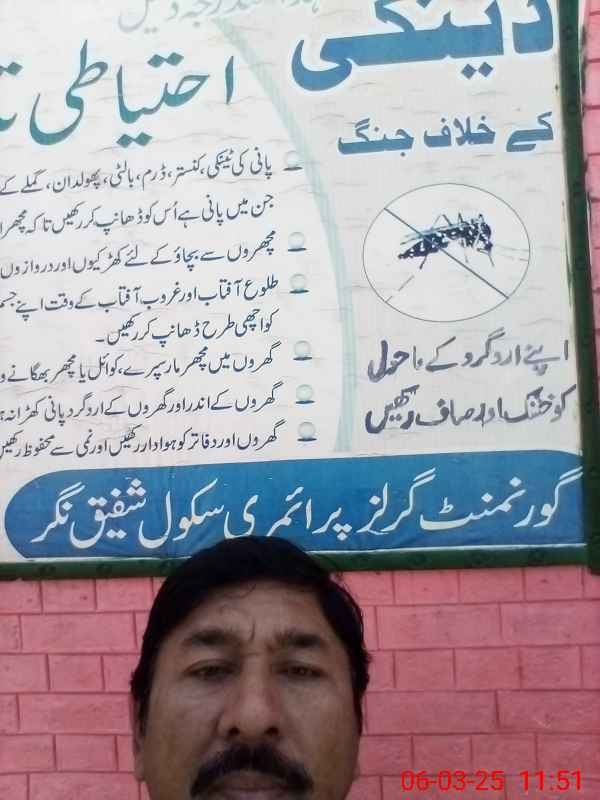 ڈینگی
کے خلاف جنگ
احتیاطی
پانی کی ٹینکی، کنستر، ڈرم، بالٹی، پھولدان، گملے
جن میں پانی ہے اُس کو ڈھانپ کر رکھیں تاکہ
مچھروں سے بچاؤ کے لئے کھڑکیوں اور دروازوں
طلوع آفتاب اور غروب آفتاب کے وقت اپنے
کو اچھی طرح ڈھانپ کر رکھیں۔
گھروں میں مچھر مار سپرے، کوائل یا مچھر بھگانے
گھروں کے اندر اور گھروں کے اردگرد پانی کھڑا نہ
گھروں اور دفاتر کو ہوادار رکھیں اور نمی سے محفوظ رکھیں
اپنے اردگرد کے ماحول
کو خشک اور صاف رکھیں
گورنمنٹ گرلز پرائمری سکول شفیق نگر
06-03-25 11:51